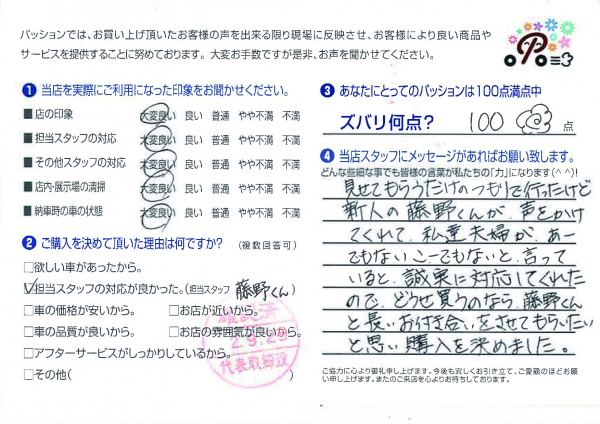 パッションでは、お買い上げ頂いたお客様の声を出来る限り現場に反映させ、お客様により良い商品や
サービスを提供することに努めております。大変お手数ですが是非、お声を聞かせてください。
❶ 当店を実際にご利用になった印象をお聞かせください。
■店の印象 大変良い 良い 普通 やや不満 不満
■担当スタッフの対応 大変良い 良い 普通 やや不満 不満
■その他スタッフの対応 大変良い 良い 普通 やや不満 不満
■店内・展示場の清掃 大変良い 良い 普通 やや不満 不満
■納車時の車の状態 大変良い 良い 普通 やや不満 不満
❷ ご購入を決めて頂いた理由は何ですか? (複数回答可)
□欲しい車があったから。
☑担当スタッフの対応が良かった。(担当スタッフ 藤野くん)
□車の価格が安いから。 □お店が近いから。
□車の品質が良いから。 □お店の雰囲気が良いから。
□アフターサービスがしっかりしているから。
□その他( )
確認済
2.9.29
代表取締役
❸ あなたにとってのパッションは100点満点中
ズバリ何点? 100 点
❹ 当店スタッフにメッセージがあればお願い致します。
どんな些細な事でも皆様の言葉が私たちの「力」になります(^^)!
見せてもらうだけのつもりで行ったけど
新人の藤野くんが、声をかけ
てくれて、私達夫婦が、あー
でもない、こーでもないと、言って
いると、誠実に対応してくれた
ので、どうせ買うのなら、藤野くん
と長いお付き合いをさせてもらいたい
と思い購入を決めました。
ご協力に心より御礼申し上げます。今後も宜しくお引き立て、ご愛顧のほどお願
い申し上げます。またのご来店を心よりお待ちしております。